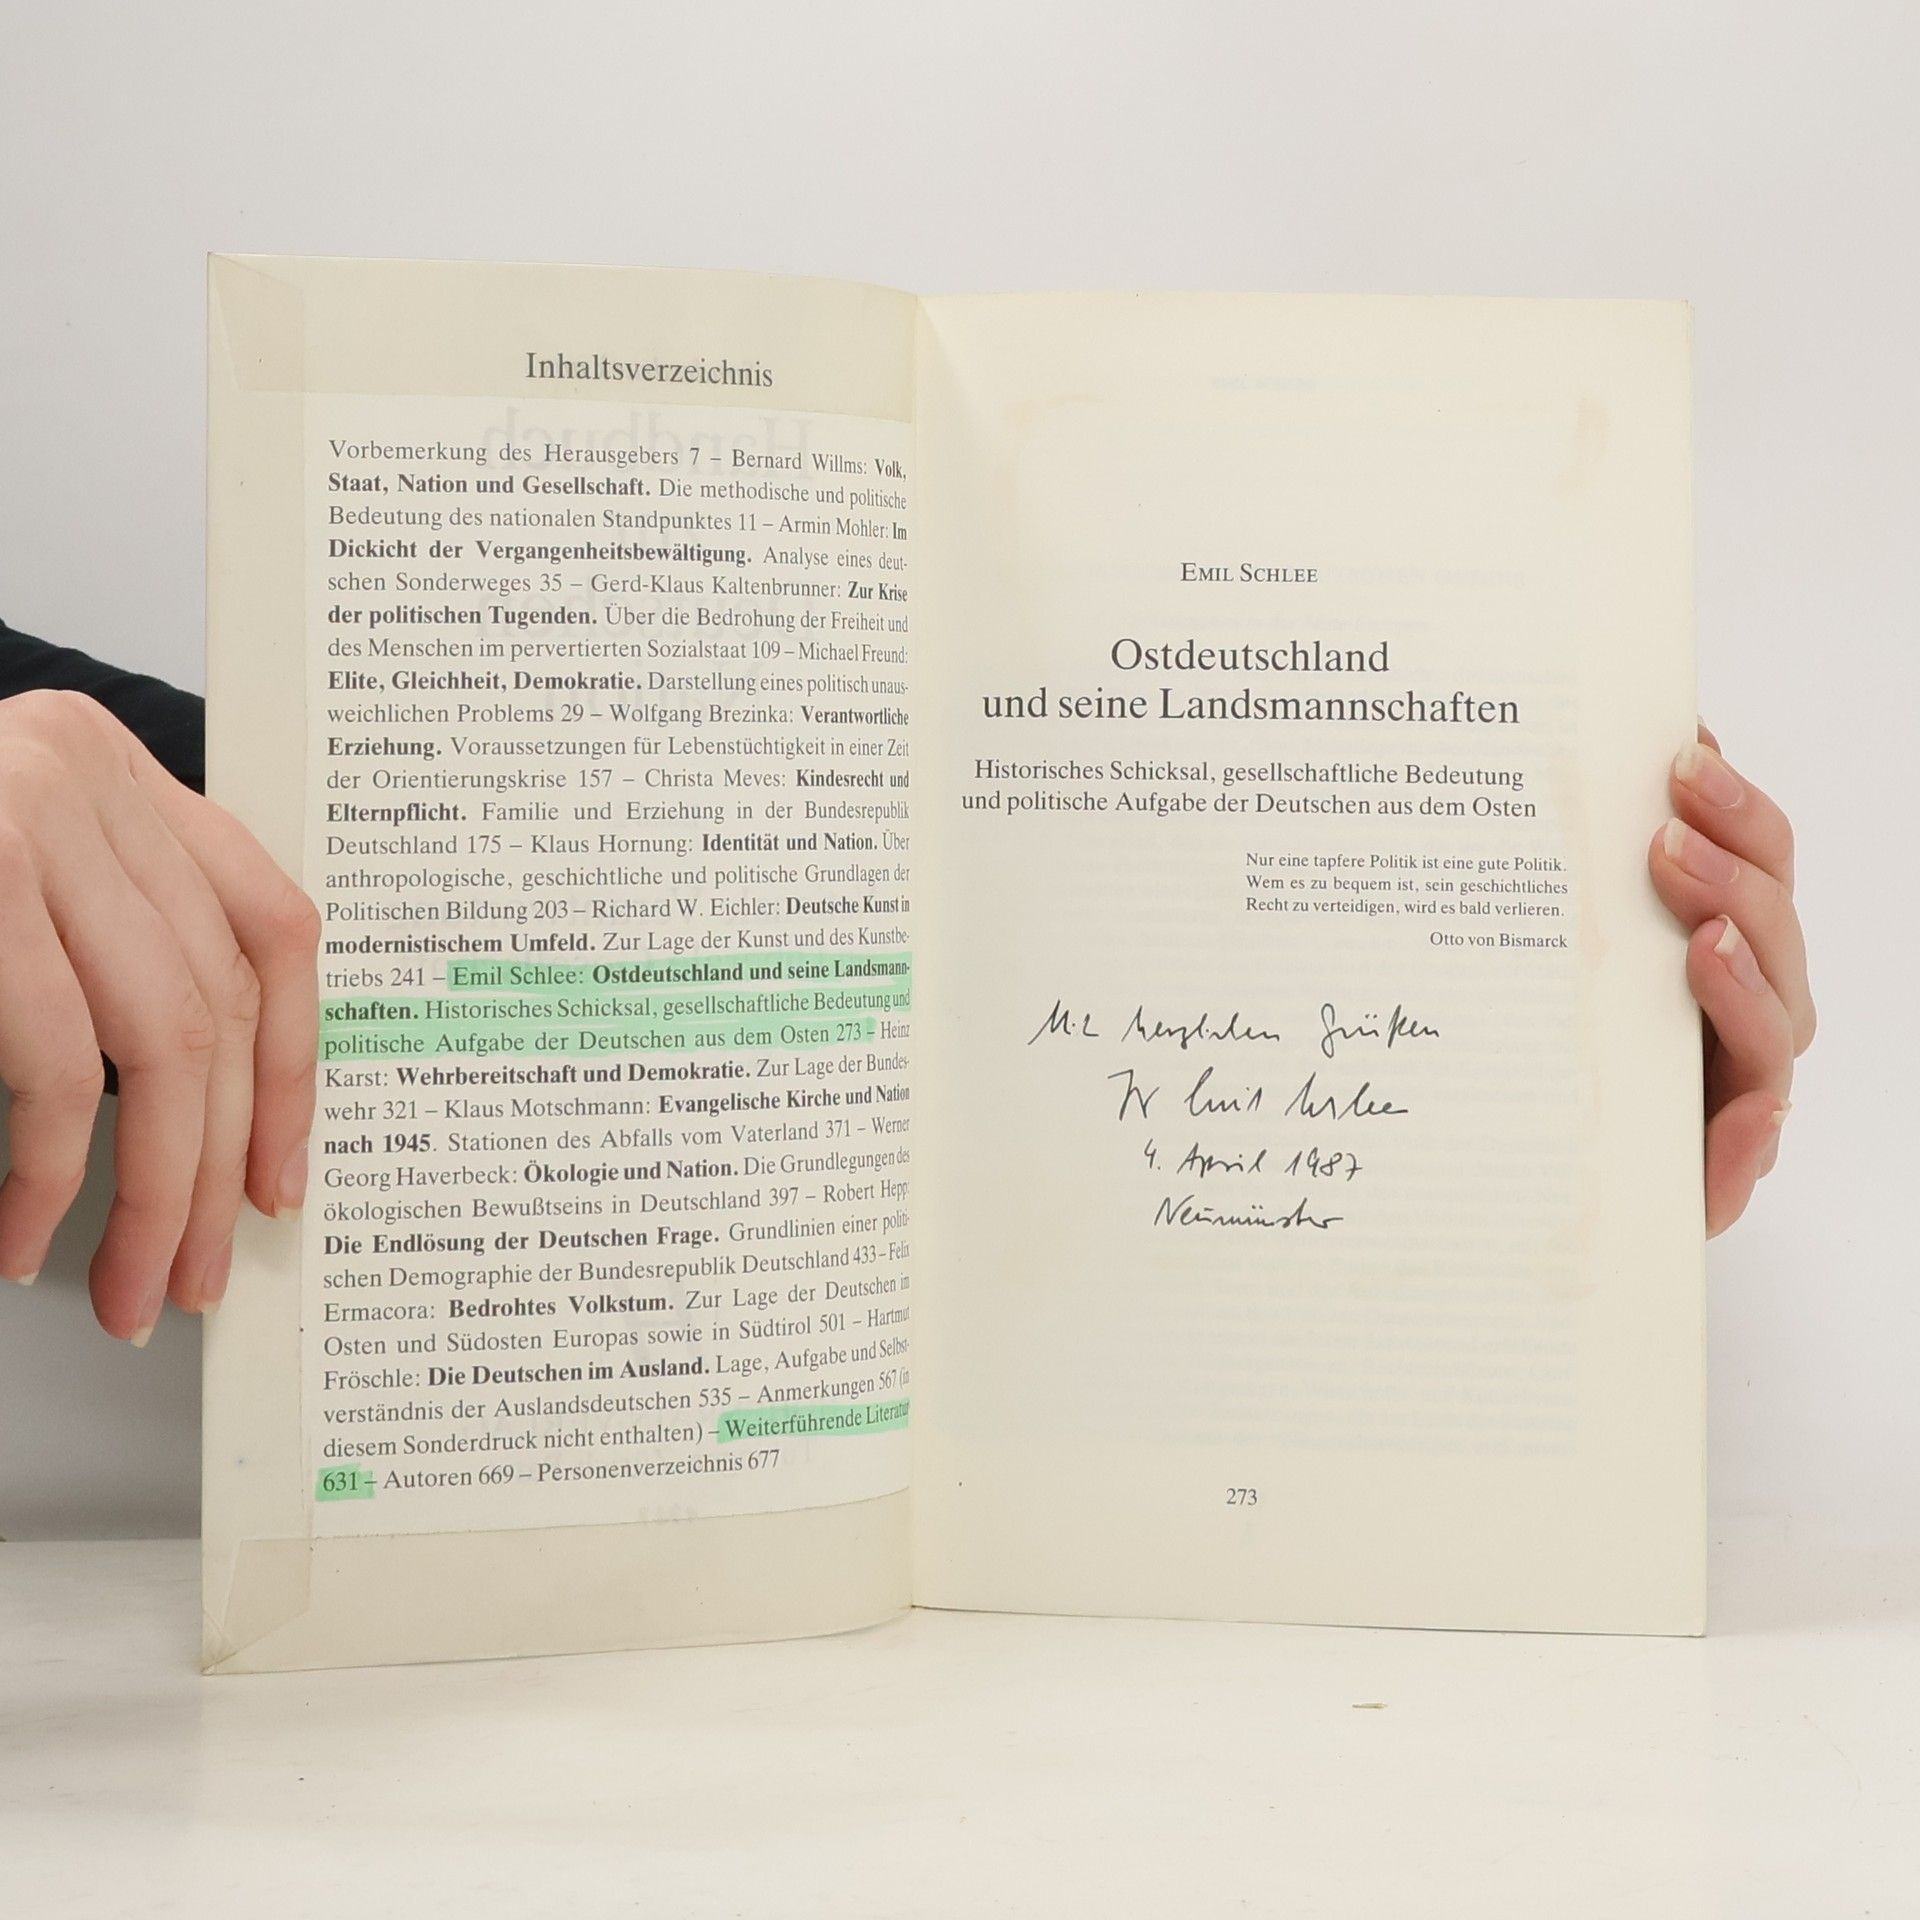 Inhaltsverzeichnis
Vorbemerkung des Herausgebers 7 – Bernard Willms: Volk,
Staat, Nation und Gesellschaft. Die methodische und politische
Bedeutung des nationalen Standpunktes 11 – Armin Mohler: Im
Dickicht der Vergangenheitsbewältigung. Analyse eines deut-
schen Sonderweges 35 – Gerd-Klaus Kaltenbrunner: Zur Krise
der politischen Tugenden. Über die Bedrohung der Freiheit und
des Menschen im pervertierten Sozialstaat 109 – Michael Freund:
Elite, Gleichheit, Demokratie. Darstellung eines politisch unaus-
weichlichen Problems 29 – Wolfgang Brezinka: Verantwortliche
Erziehung. Voraussetzungen für Lebenstüchtigkeit in einer Zeit
der Orientierungskrise 157 – Christa Meves: Kindesrecht und
Elternpflicht. Familie und Erziehung in der Bundesrepublik
Deutschland 175 – Klaus Hornung: Identität und Nation. Über
anthropologische, geschichtliche und politische Grundlagen der
Politischen Bildung 203 – Richard W. Eichler: Deutsche Kunst in
modernistischem Umfeld. Zur Lage der Kunst und des Kunstbe-
triebs 241 – Emil Schlee: Ostdeutschland und seine Landsmann-
schaften. Historisches Schicksal, gesellschaftliche Bedeutung und
politische Aufgabe der Deutschen aus dem Osten 273 – Heinz
Karst: Wehrbereitschaft und Demokratie. Zur Lage der Bundes-
wehr 321 – Klaus Motschmann: Evangelische Kirche und Nation
nach 1945. Stationen des Abfalls vom Vaterland 371 – Werner
Georg Haverbeck: Ökologie und Nation. Die Grundlegungen des
ökologischen Bewußtseins in Deutschland 397 – Robert Hepp:
Die Endlösung der Deutschen Frage. Grundlinien einer politi-
schen Demographie der Bundesrepublik Deutschland 433 – Felix
Ermacora: Bedrohtes Volkstum. Zur Lage der Deutschen im
Osten und Südosten Europas sowie in Südtirol 501 – Hartmut
Fröschle: Die Deutschen im Ausland. Lage, Aufgabe und Selbst-
verständnis der Auslandsdeutschen 535 – Anmerkungen 567 (in
diesem Sonderdruck nicht enthalten) – Weiterführende Literatur
631 – Autoren 669 – Personenverzeichnis 677
EMIL SCHLEE
Ostdeutschland
und seine Landsmannschaften
Historisches Schicksal, gesellschaftliche Bedeutung
und politische Aufgabe der Deutschen aus dem Osten
Nur eine tapfere Politik ist eine gute Politik.
Wem es zu bequem ist, sein geschichtliches
Recht zu verteidigen, wird es bald verlieren.
Otto von Bismarck
Mit herzlichen Grüßen
Ihr Emil Schlee
4. April 1987
Neumünster
273